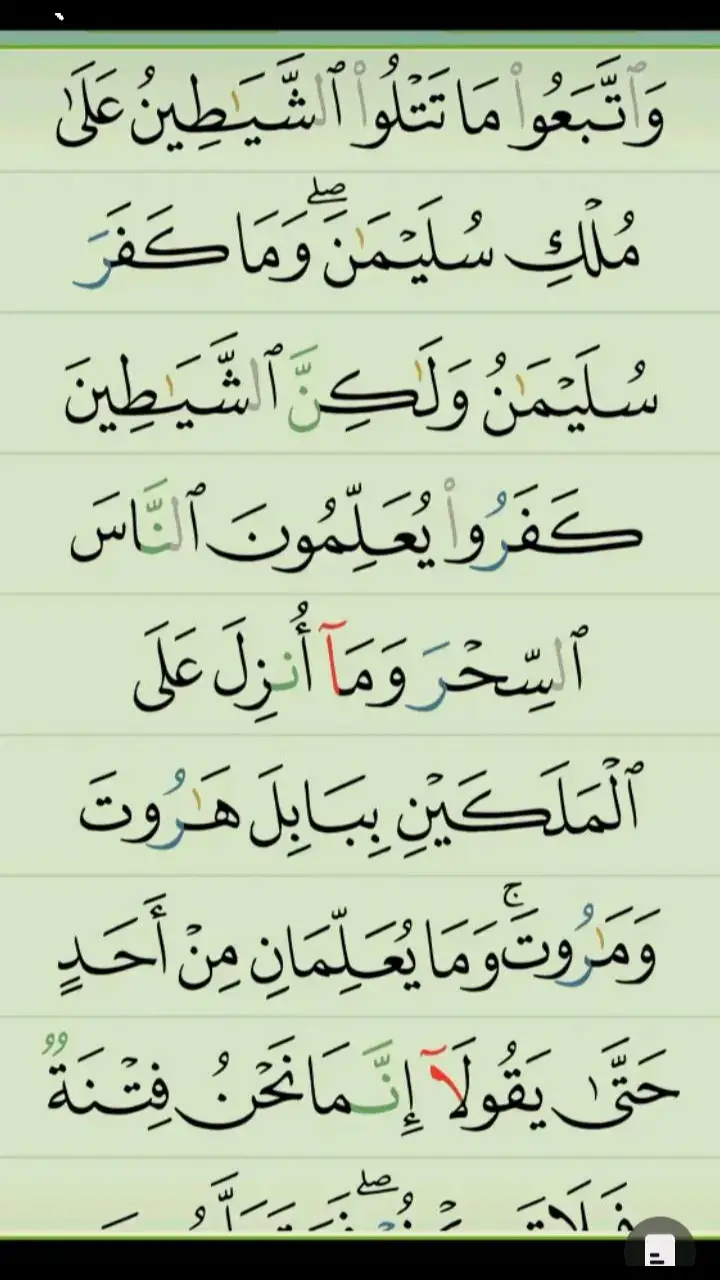 وَٱتَّبَعُوا۟ مَا تَتْلُوا۟ ٱلشَّيَـٰطِينُ عَلَىٰ
مُلْكِ سُلَيْمَـٰنَ ۖ وَمَا كَفَرَ
سُلَيْمَـٰنُ وَلَـٰكِنَّ ٱلشَّيَـٰطِينَ
كَفَرُوا۟ يُعَلِّمُونَ ٱلنَّاسَ
ٱلسِّحْرَ وَمَآ أُنزِلَ عَلَى
ٱلْمَلَكَيْنِ بِبَابِلَ هَـٰرُوتَ
وَمَـٰرُوتَ ۚ وَمَا يُعَلِّمَانِ مِنْ أَحَدٍ
حَتَّىٰ يَقُولَآ إِنَّمَا نَحْنُ فِتْنَةٌ